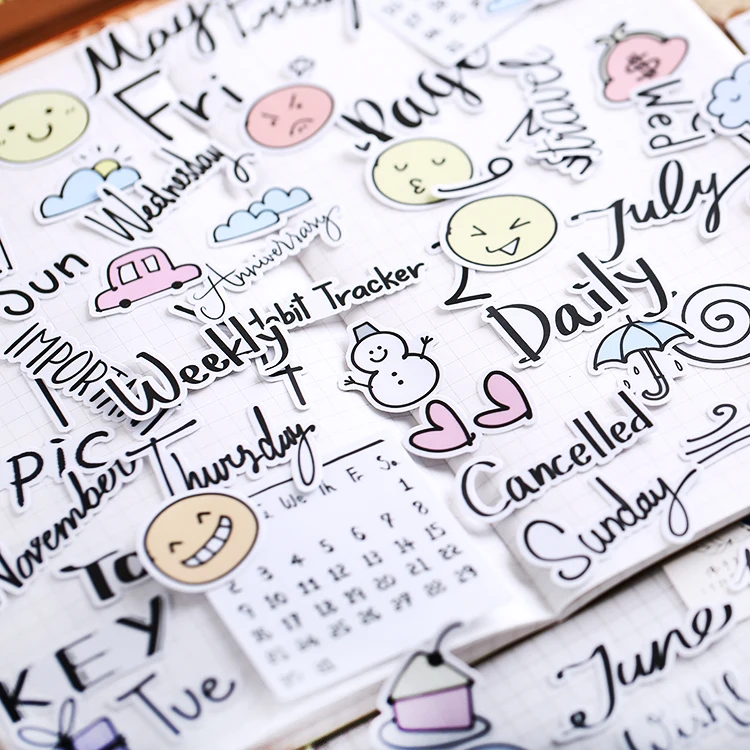 May
Friday
Fri
Page
travel
$
Wed
Wednesday
July
Sun
Anniversary
Habit Tracker
Daily
IMPORTANT
Weekly
PiC
Thursday
November
Cancelled
Sunday
We Th Fr Sa
1
4 5 6 7 8
2 3
9 10 11 12 13 14 15
16 17 18 19 20 21 22
23 24 25 26 27 28 29
30 31
To
KEY
Tue
June
Wishli